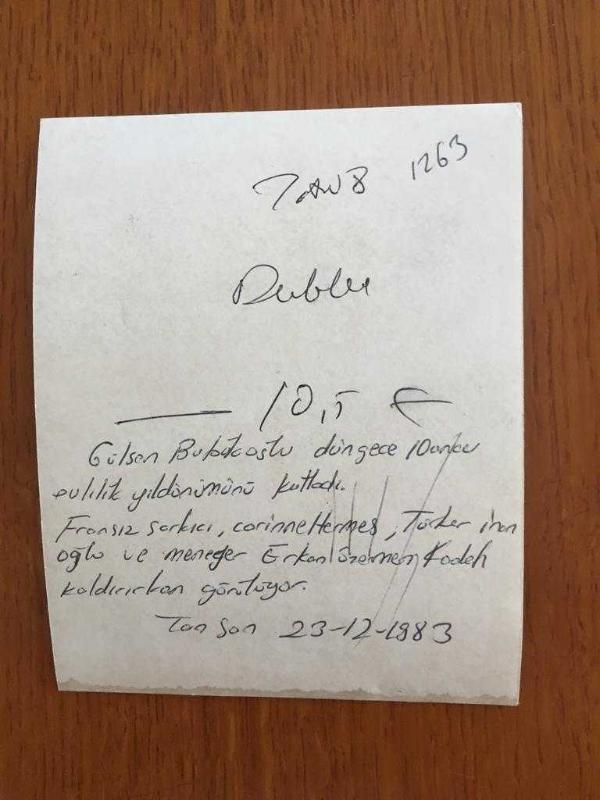 1263
Duble
10,5
Gülşen Bubikoğlu dün gece 10uncu
evlilik yıldönümünü kutladı.
Fransız şarkıcı, corinne Hermes, Türker inan
oğlu ve meneğer Erkan Özermen Kadeh
kaldırırkan görülüyor.
Tan Son 23-12-1983